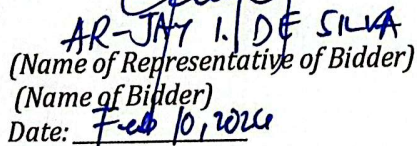 AR-JAY I. DE SILVA
(Name of Representative of Bidder)
(Name of Bidder)
Date: Feb 10, 2026